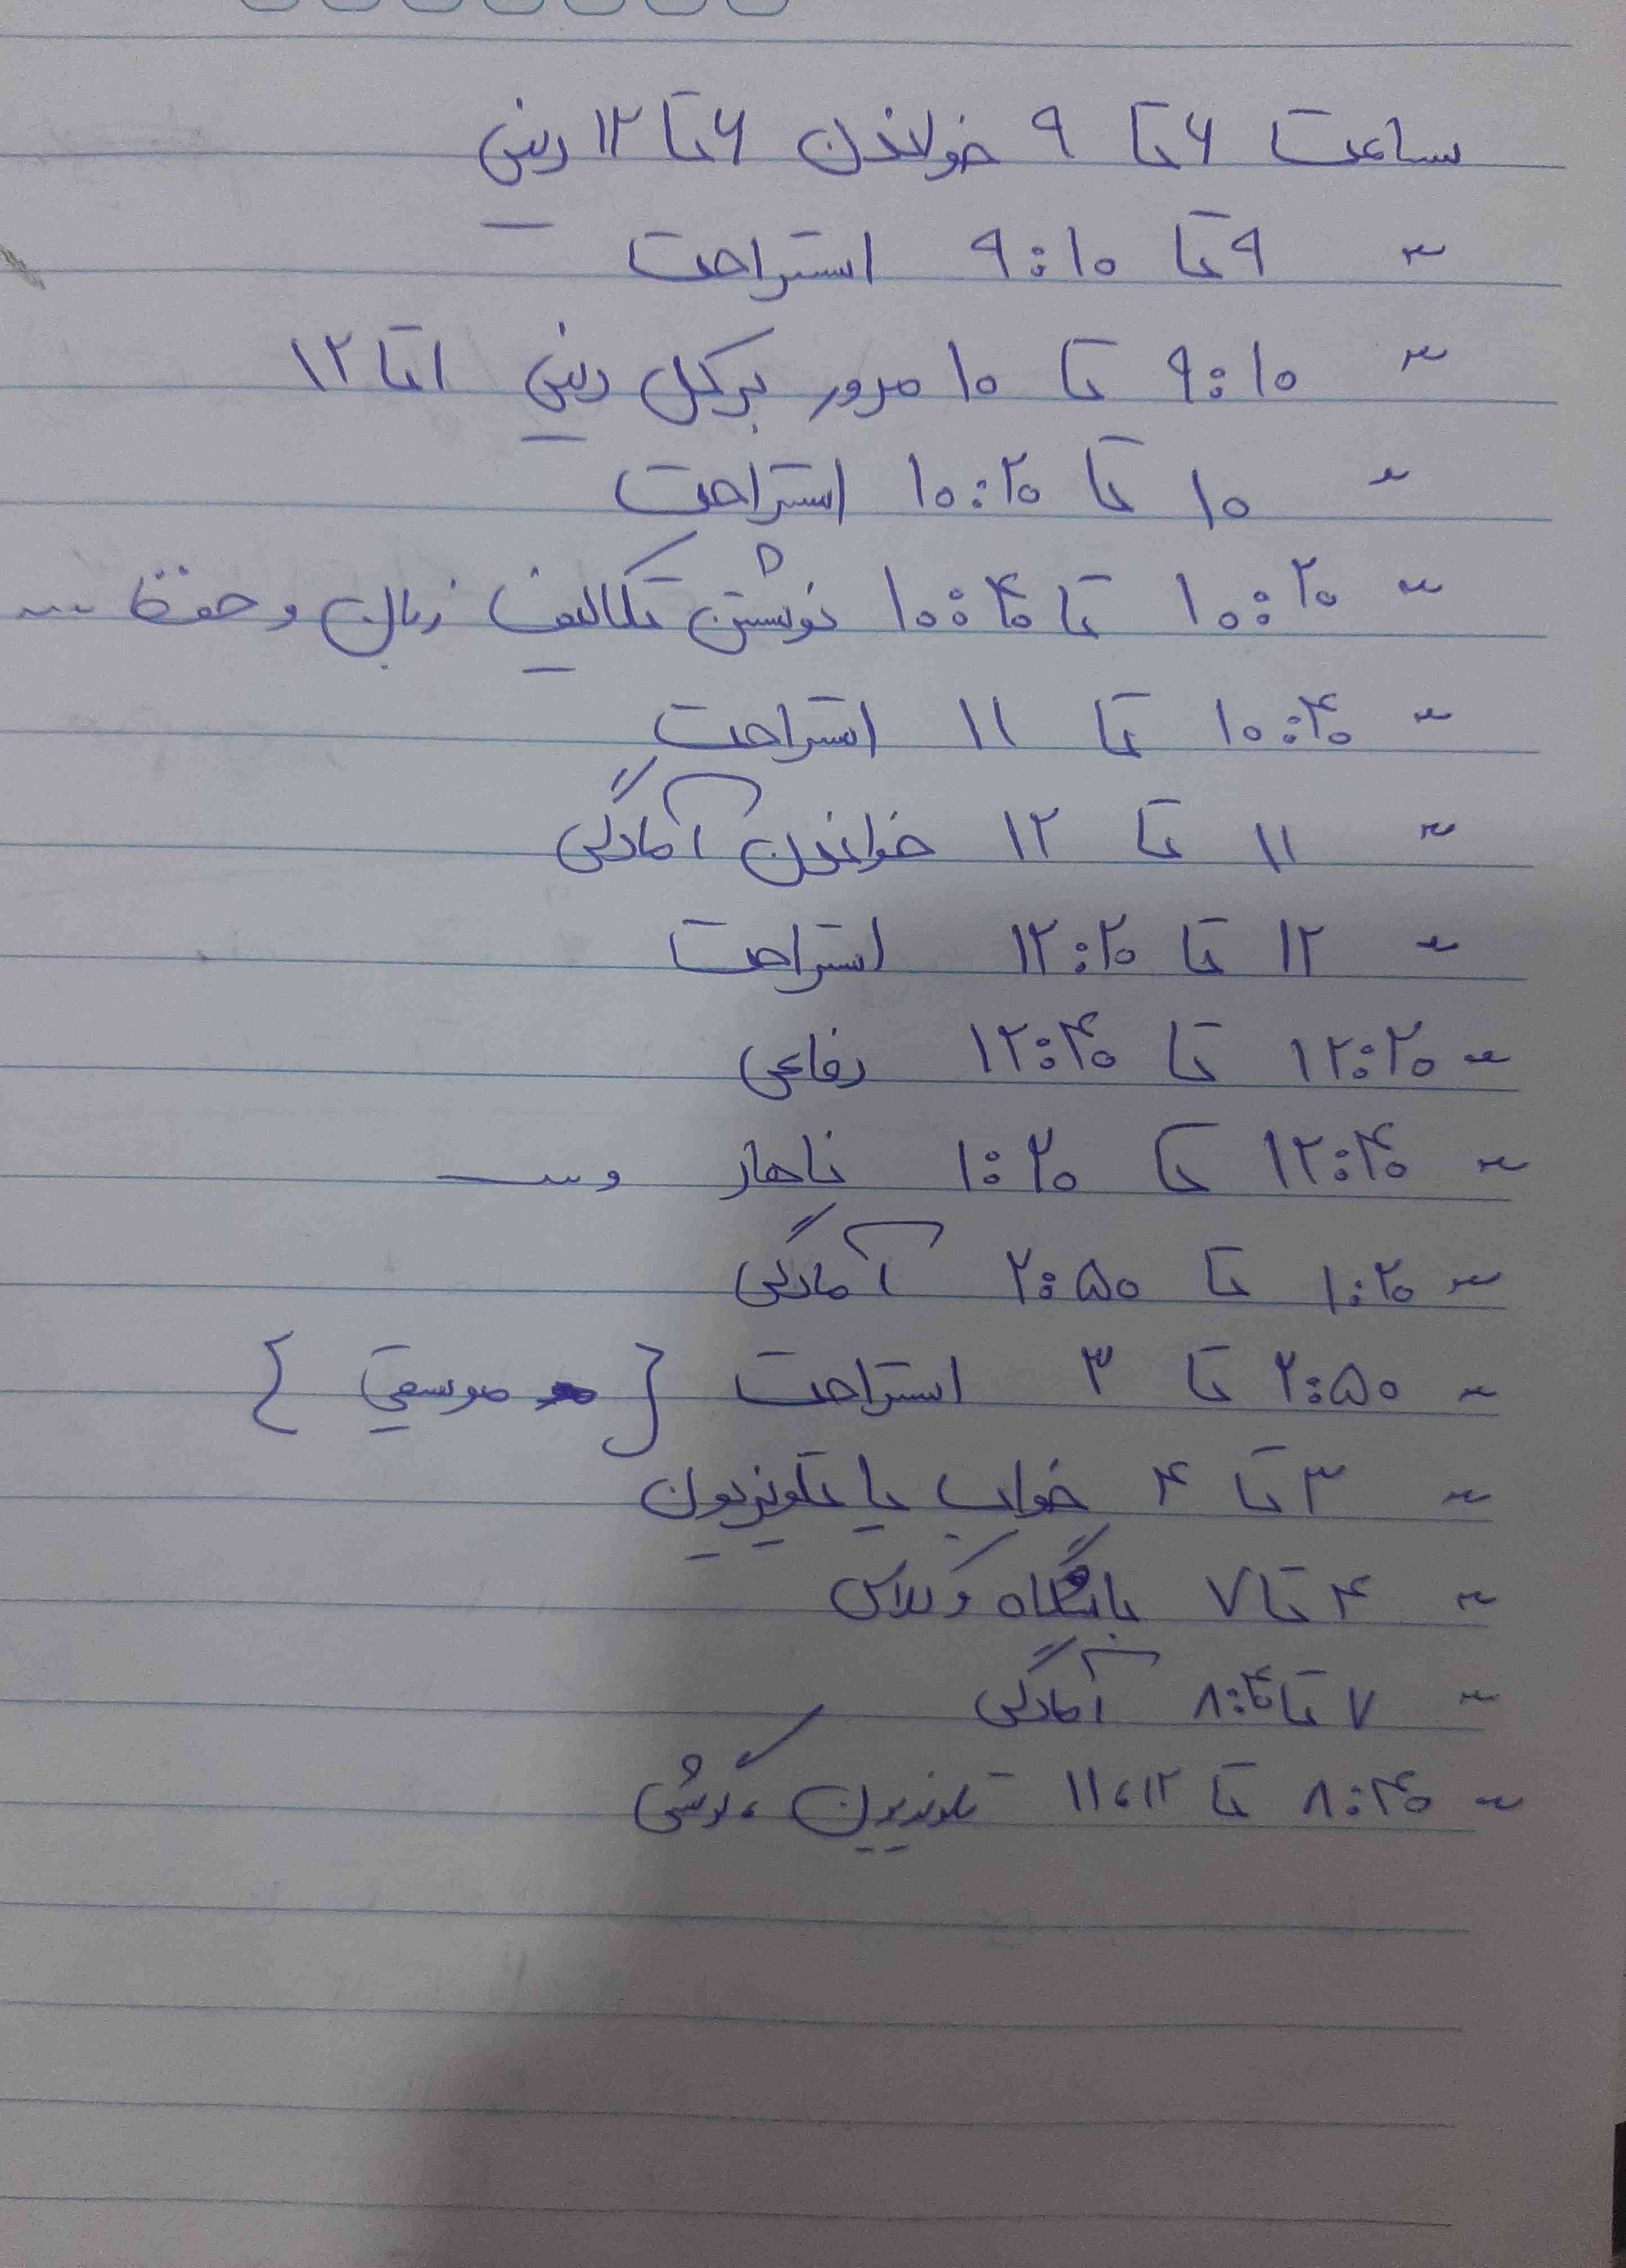 ساعت ۶ تا ۹ خواندن ۶ تا ۱۲ دینی
~ ۹ تا ۹:۱۰ استراحت
~ ۹:۱۰ تا ۱۰ مرور بر کل دینی ۱ تا ۱۲
~ ۱۰ تا ۱۰:۲۰ استراحت
~ ۱۰:۲۰ تا ۱۰:۴۰ نوشتن تکالیف زبان و حفظ ...
~ ۱۰:۴۰ تا ۱۱ استراحت
~ ۱۱ تا ۱۲ خواندن آمادگی
~ ۱۲ تا ۱۲:۲۰ استراحت
~ ۱۲:۲۰ تا ۱۲:۴۰ دفاعی
~ ۱۲:۴۰ تا ۱:۲۰ ناهار و ...
~ ۱:۲۰ تا ۲:۵۰ آمادگی
~ ۲:۵۰ تا ۳ استراحت { موسیقی }
~ ۳ تا ۴ خواب یا تلویزیون
~ ۴ تا ۷ باشگاه و کلاس
~ ۷ تا ۸:۴۰ آمادگی
~ ۸:۴۰ تا ۱۱،۱۲ تلویزیون، گوشی